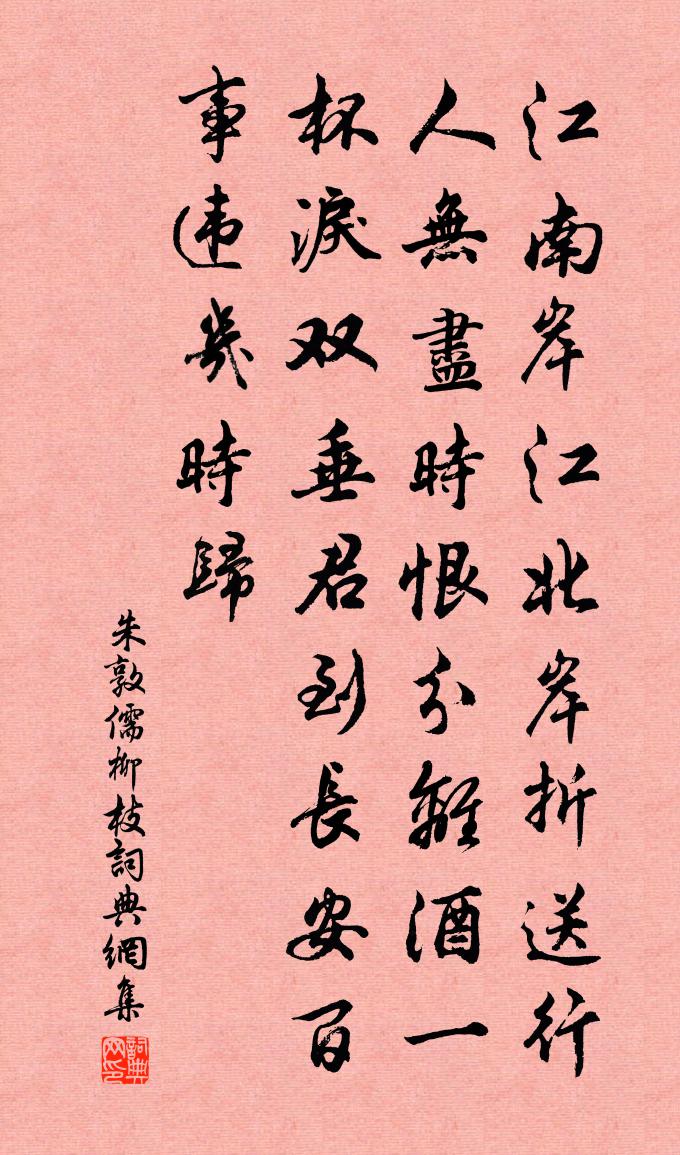 江南岸江北岸折送行
人無盡時恨分離酒一
杯淚双垂君到長安百
事违幾時歸
朱敦儒柳枝詞典網集
詞典网印